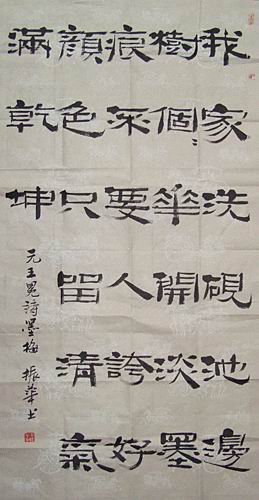 我家洗硯池邊
樹個〻華開淡墨
痕不要人誇好
顏色只留清氣
滿乾坤
元王冕詩墨梅 振華书